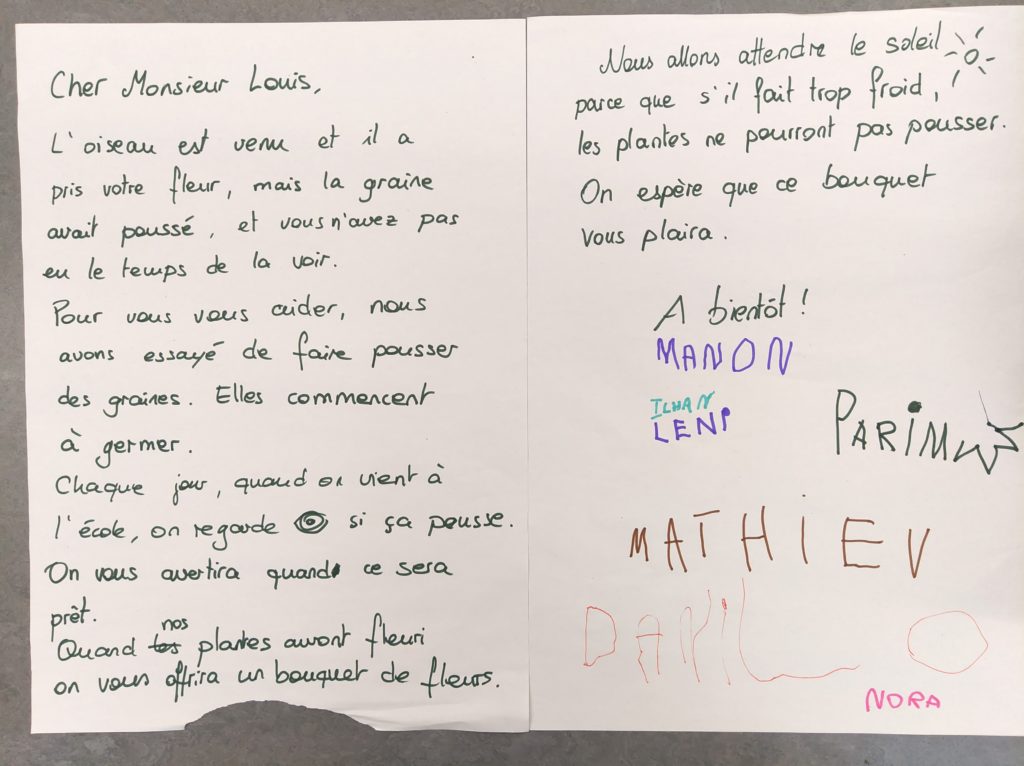 Cher Monsieur Louis,
L'oiseau est venu et il a
pris votre fleur, mais la graine
avait poussé, et vous n'avez pas
eu le temps de la voir.
Pour vous vous aider, nous
avons essayé de faire pousser
des graines. Elles commencent
à germer.
Chaque jour, quand on vient à
l'école, on regarde si ça pousse.
On vous avertira quand ce sera
prêt.
nos
Quand tes plantes auront fleuri
on vous offrira un bouquet de fleurs.
Nous allons attendre le soleil
parce que s'il fait trop froid,
les plantes ne pourront pas pousser.
On espère que ce bouquet
vous plaira.
A bientôt !
MANON
ILHAN
LENI
MATHIEU
DANILO
NORA